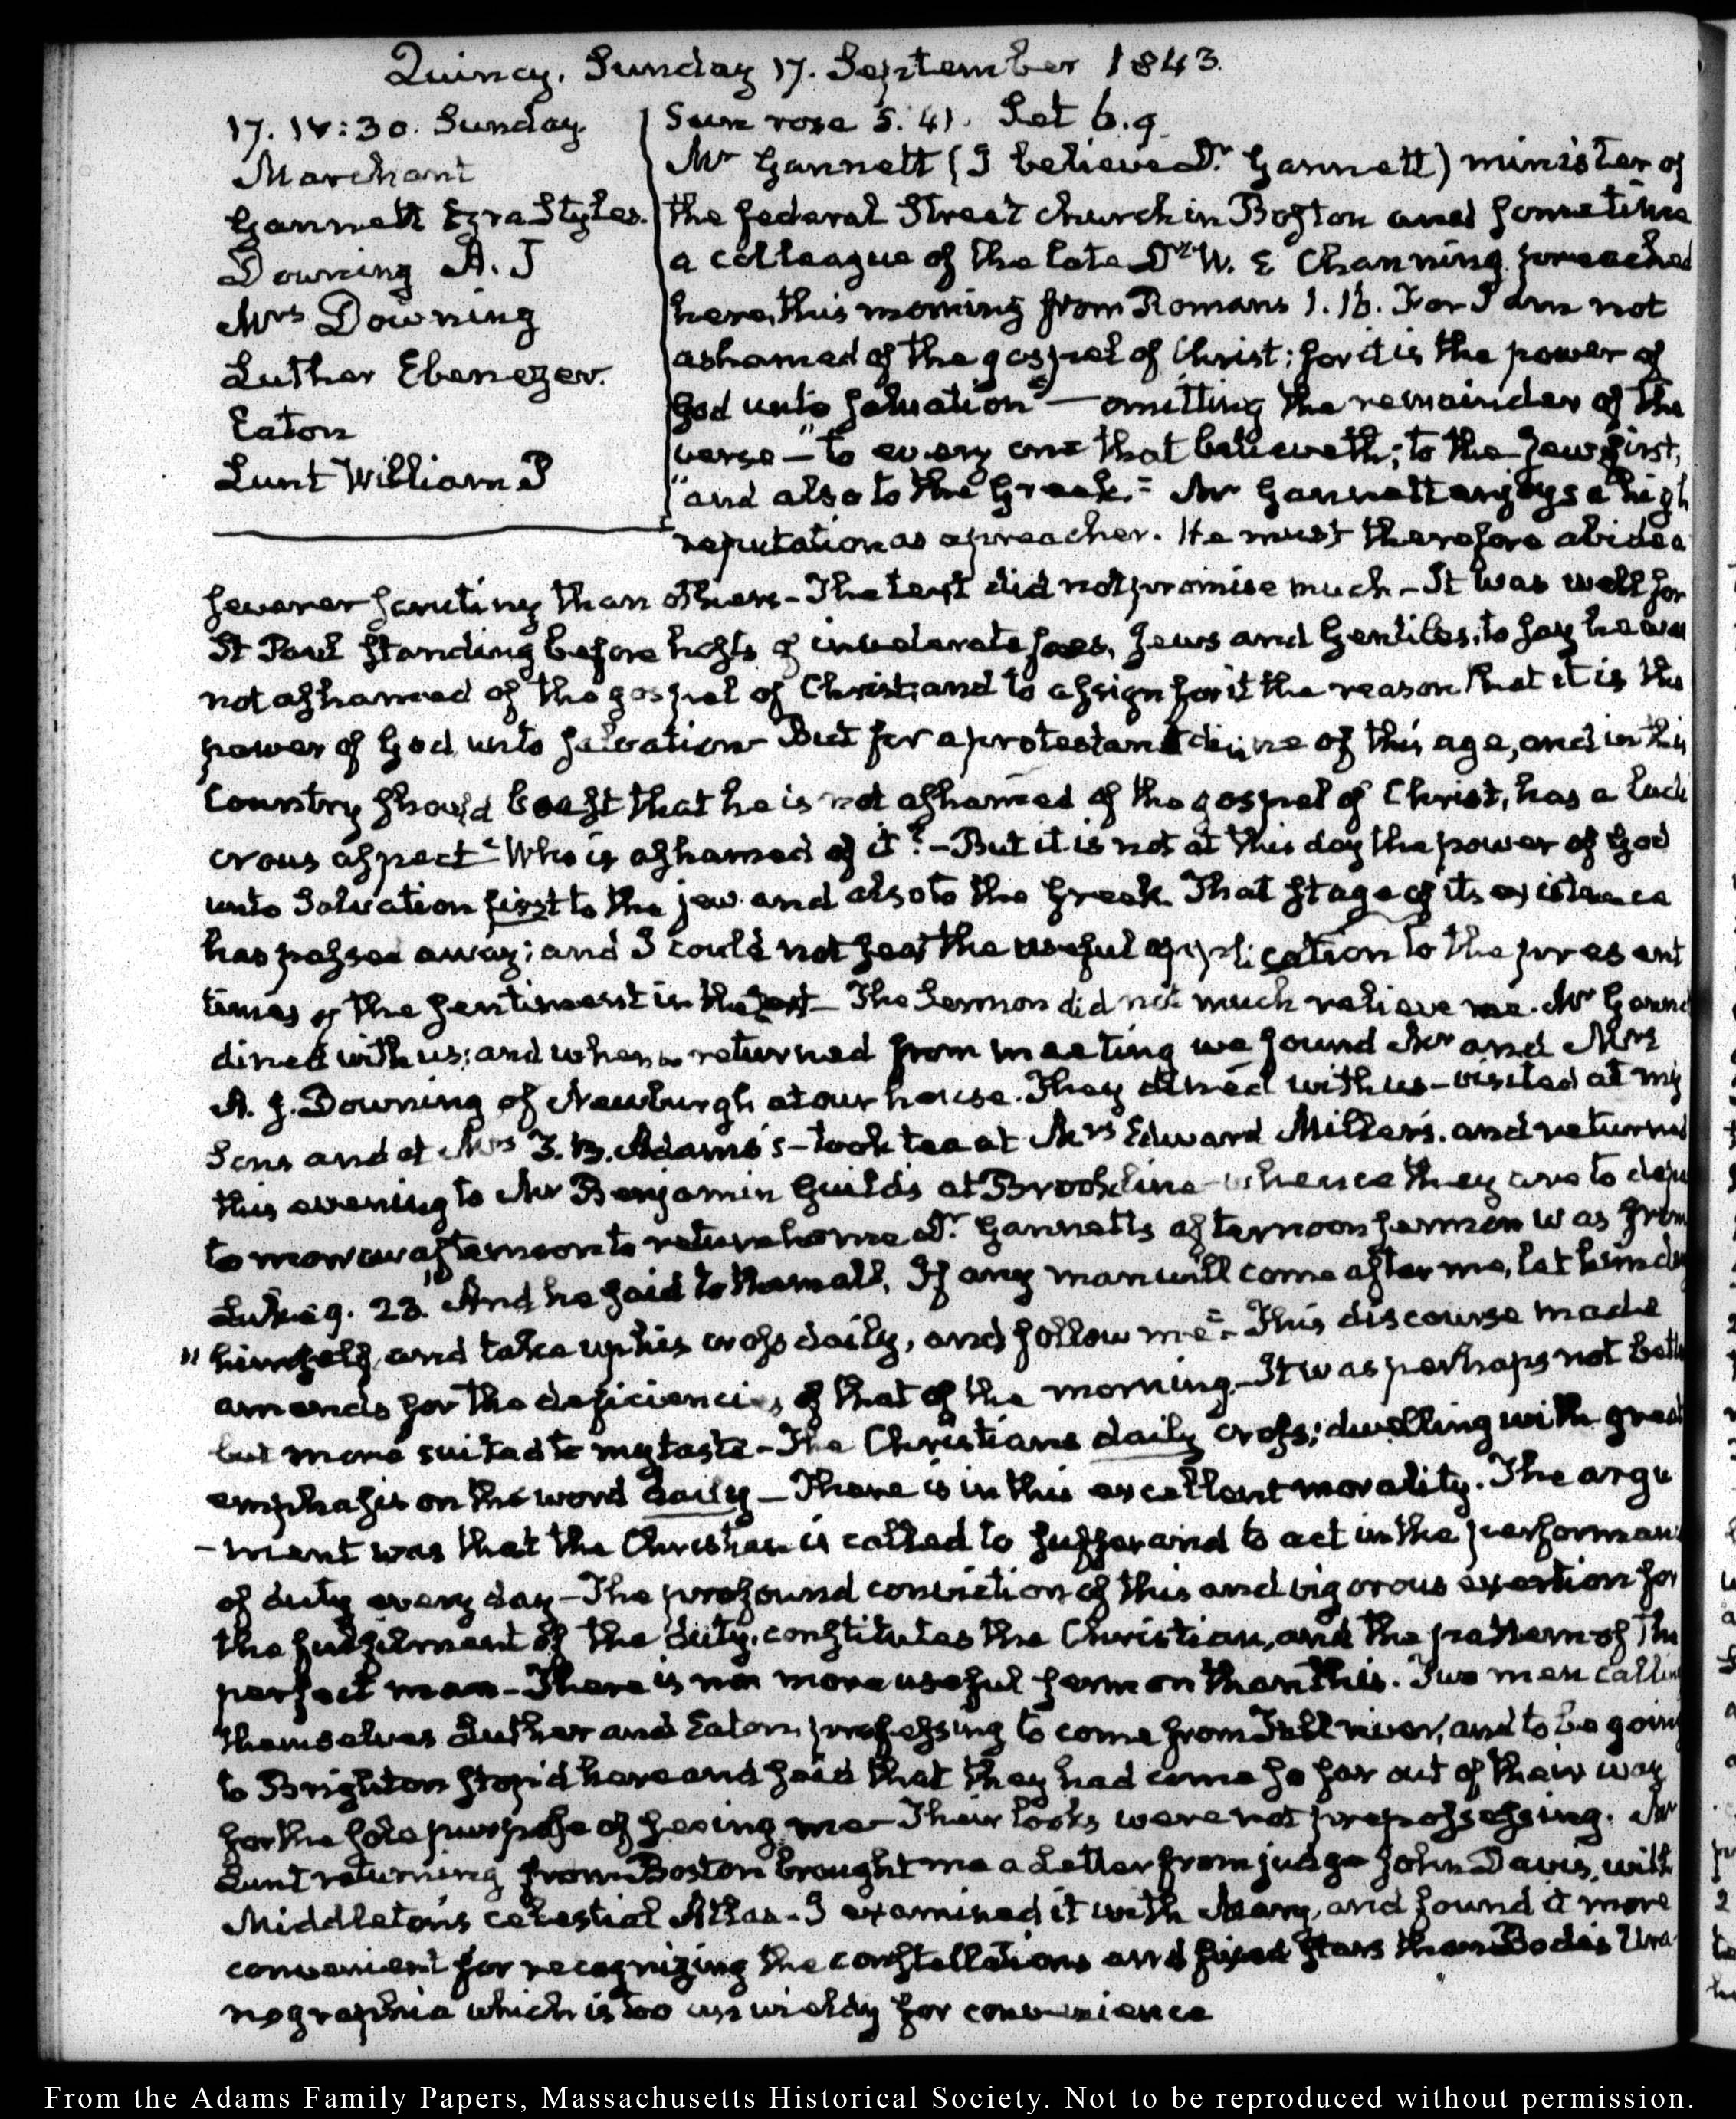 Quincy. Sunday 17. September 1843.
17. IV:30. Sunday
Marchant
Gannett Ezra Styles.
Downing A. J
Mrs Downing
Luther Ebenezer.
Eaton
Lunt William P
Sun rose 5. 41. Set 6. 9.
Mr Gannett (I believe Dr. Gannett) minister of
the federal Street church in Boston and sometime
a colleague of the late Dr W. E Channing preached
here, this morning from Romans 1. 16. For I am not
ashamed of the gospel of Christ: for it is the power of
God unto salvation" — omitting the remainder of the
verse — "to every one that believeth; to the Jew first,
"and also to the Greek." Mr Gannett enjoys a high
reputation as a preacher. He must therefore abide a
severer scrutiny than others - The text did not promise much - It was well for
St Paul standing before hosts of inveterate foes, Jews and Gentiles, to say he was
not ashamed of the gospel of Christ; and to assign for it the reason that it is the
power of God unto salvation - But for a protestant divine of this age, and in this
Country should boast that he is not ashamed of the gospel of Christ, has a ludi
crous aspect - Who is ashamed of it? - But it is not at this day the power of God
unto Salvation first to the jew and also to the Greek. That stage of its existence
has passed away; and I could not see the useful application to the present
times of the sentiment in the text - The Sermon did not much relieve me. Mr Gann
dined with us; and when returned from meeting we found Mr and Mrs
A. J. Downing of Newburgh at our house. They dined with us - visited at my
Sons and at Mrs T. B. Adams's - took tea at Mrs Edward Miller's. and returned
this evening to Mr Benjamin Guild's at Brookline whence they are to depa
tomorrow afternoon to return home Dr. Gannetts afternoon sermon was from
Luke 9. 23. "And he said to them all, If any man will come after me, let him deny
" himself, and take up his cross daily, and follow me". This discourse made
amends for the deficiencies of that of the morning. - It was perhaps not bett
but more suited to my taste - The Christians daily cross; dwelling with great
emphasis on the word daily - There is in this excellent morality. The argu
- ment was that the Christian is called to suffer and to act in the performan
of duty every day - The profound conviction of this and vigorous exertion for
the fulfilment of the duty, constitutes the Christian, and the pattern of the
perfect man - There is no more useful sermon than this. Two men callin
themselves Luther and Eaton, professing to come from Fall river, and to be goin
to Brighton stop'd here and said that they had come so far out of their way
for the sole purpose of seeing me - Their looks were not prepossessing. Mr
Lunt returning from Boston brought me a Letter from judge John Davis, with
Middleton's celestial Atlas - I examined it with Mary, and found it more
convenient for recognizing the constellations and fixed stars than Bode's Ura
nographia which is too unwieldy for convenience
From the Adams Family Papers, Massachusetts Historical Society. Not to be reproduced without permission.